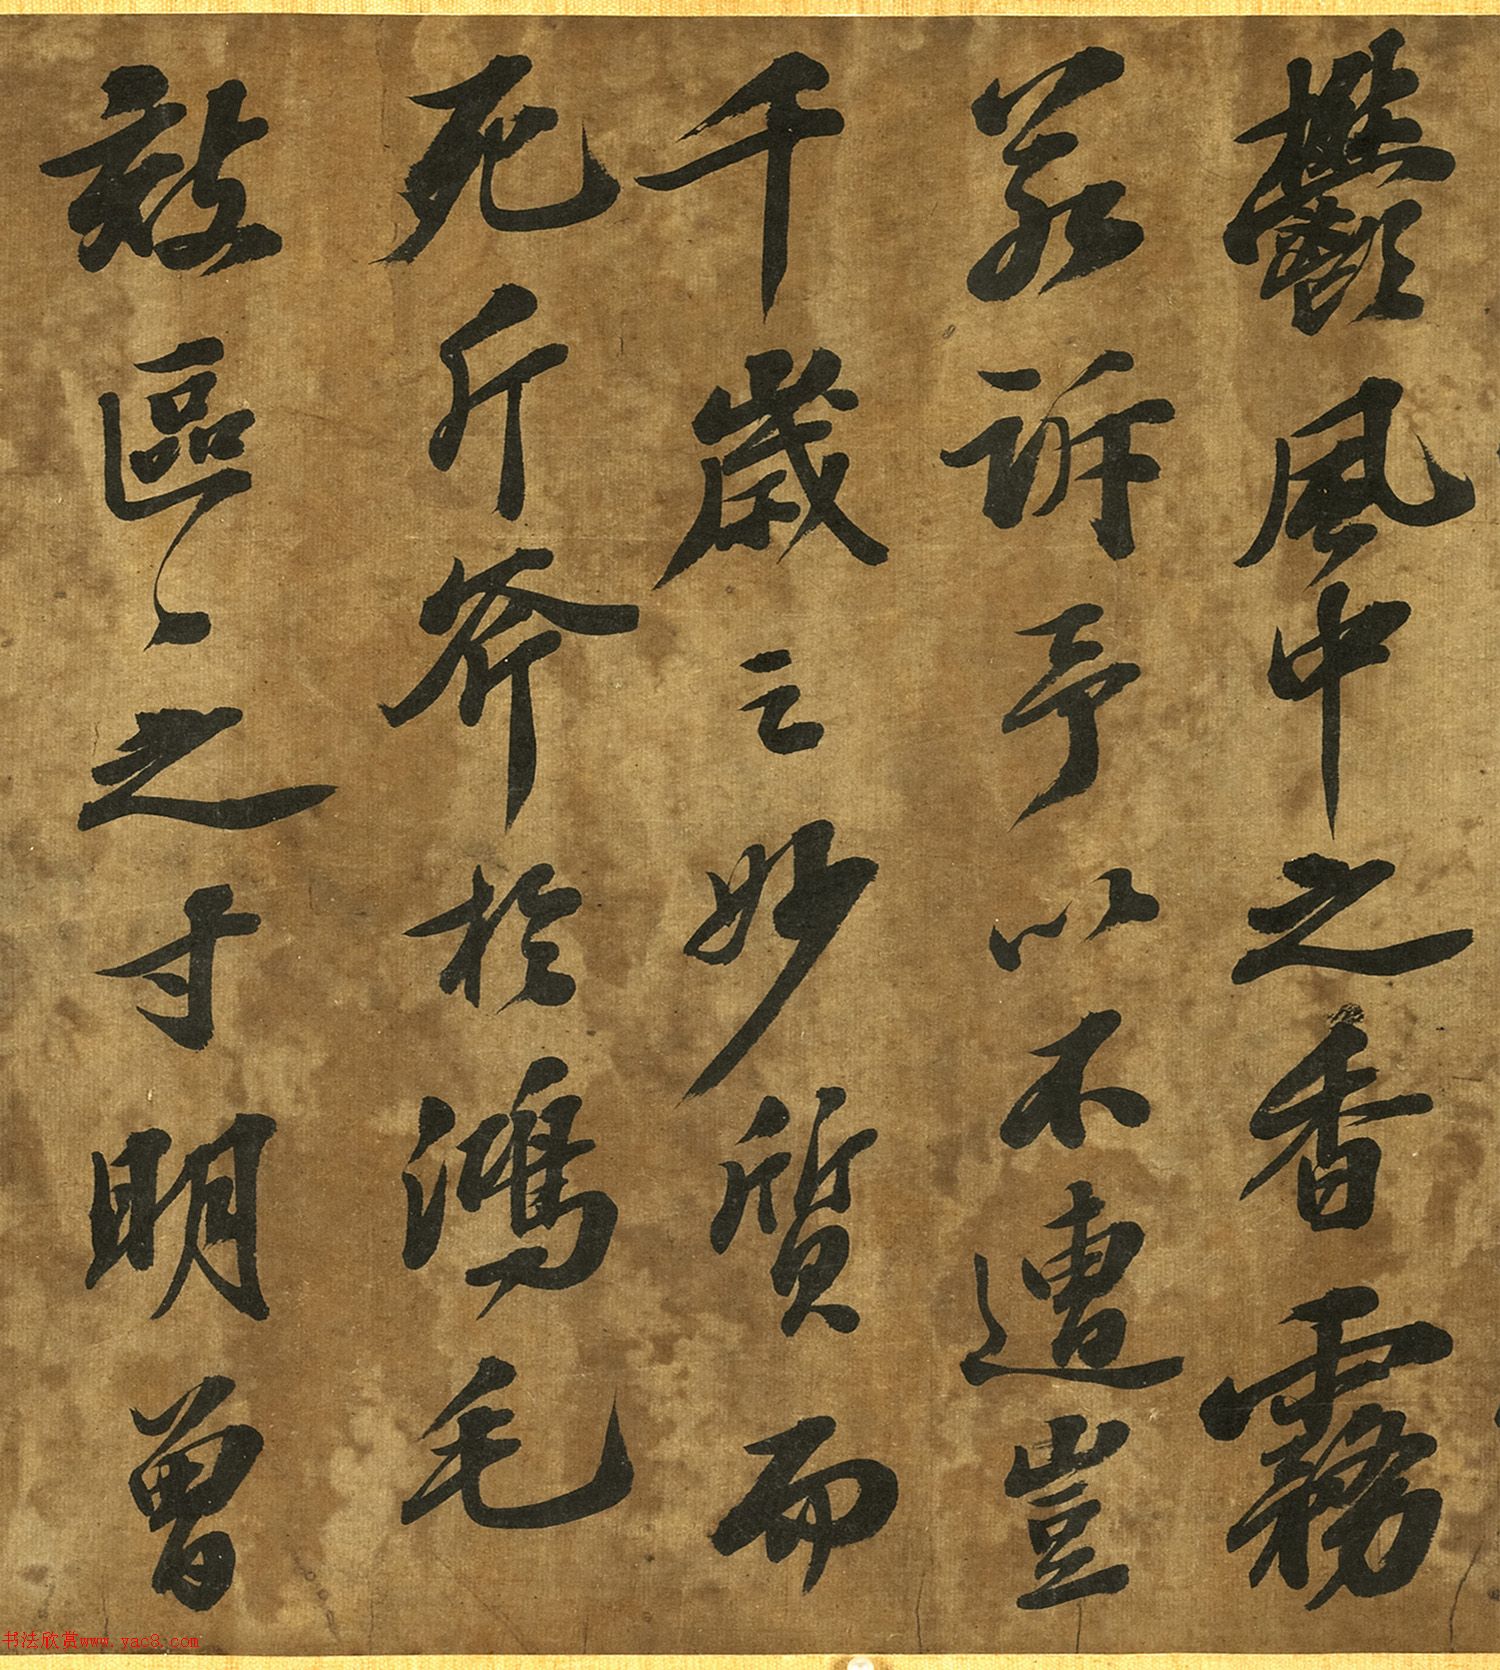 鬱風中之香霧
若訴予以不遭豈
千歲之妙質而
死斤斧於鴻毛
效區々之寸明曾
书法欣赏www.yac8.com